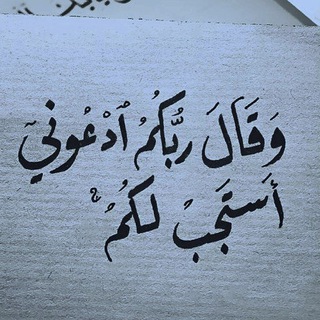 وَقَالَ رَبُّكُمُ ٱدْعُونِيٓ
أَسْتَجِبْ لَكُمْ ۚ